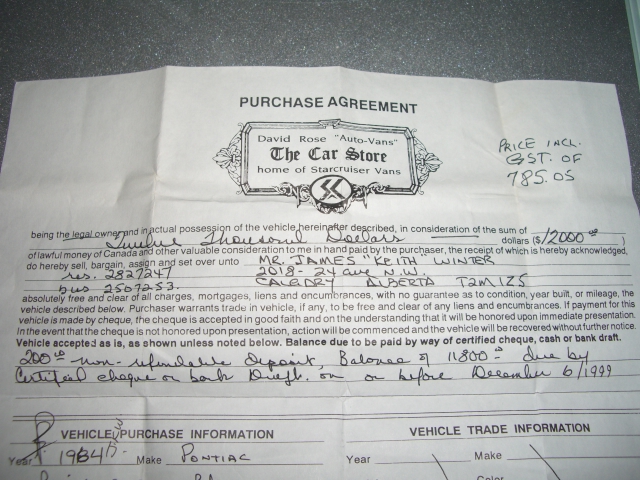 PURCHASE AGREEMENT
David Rose "Auto-Vans"
The Car Store
home of Starcruiser Vans
PRICE INCL.
GST. OF
785.05
being the legal owner and in actual possession of the vehicle hereinafter described, in consideration of the sum of
Twelve Thousand Dollars dollars ($12000.00)
of lawful money of Canada and other valuable consideration to me in hand paid by the purchaser, the receipt of which is hereby acknowledged,
do hereby sell, bargain, assign and set over unto MR. JAMES "KEITH" WINTER
res. 2827247 2018-24 ave N.W.
bus 2507253. CALGARY ALBERTA T2M1Z5
absolutely free and clear of all charges, mortgages, liens and encumbrances, with no guarantee as to condition, year built, or mileage, the
vehicle described below. Purchaser warrants trade in vehicle, if any, to be free and clear of any liens and encumbrances. If payment for this
vehicle is made by cheque, the cheque is accepted in good faith and on the understanding that it will be honored upon immediate presentation.
In the event that the cheque is not honored upon presentation, action will be commenced and the vehicle will be recovered without further notice.
Vehicle accepted as is, as shown unless noted below. Balance due to be paid by way of certified cheque, cash or bank draft.
200.00 non-refundable Deposit, Balance of 11800.00 due by
Certified cheque or bank Draft. on or before December 6/1999
VEHICLE PURCHASE INFORMATION
VEHICLE TRADE INFORMATION
Year 1984 Make PONTIAC
Year Make
Color